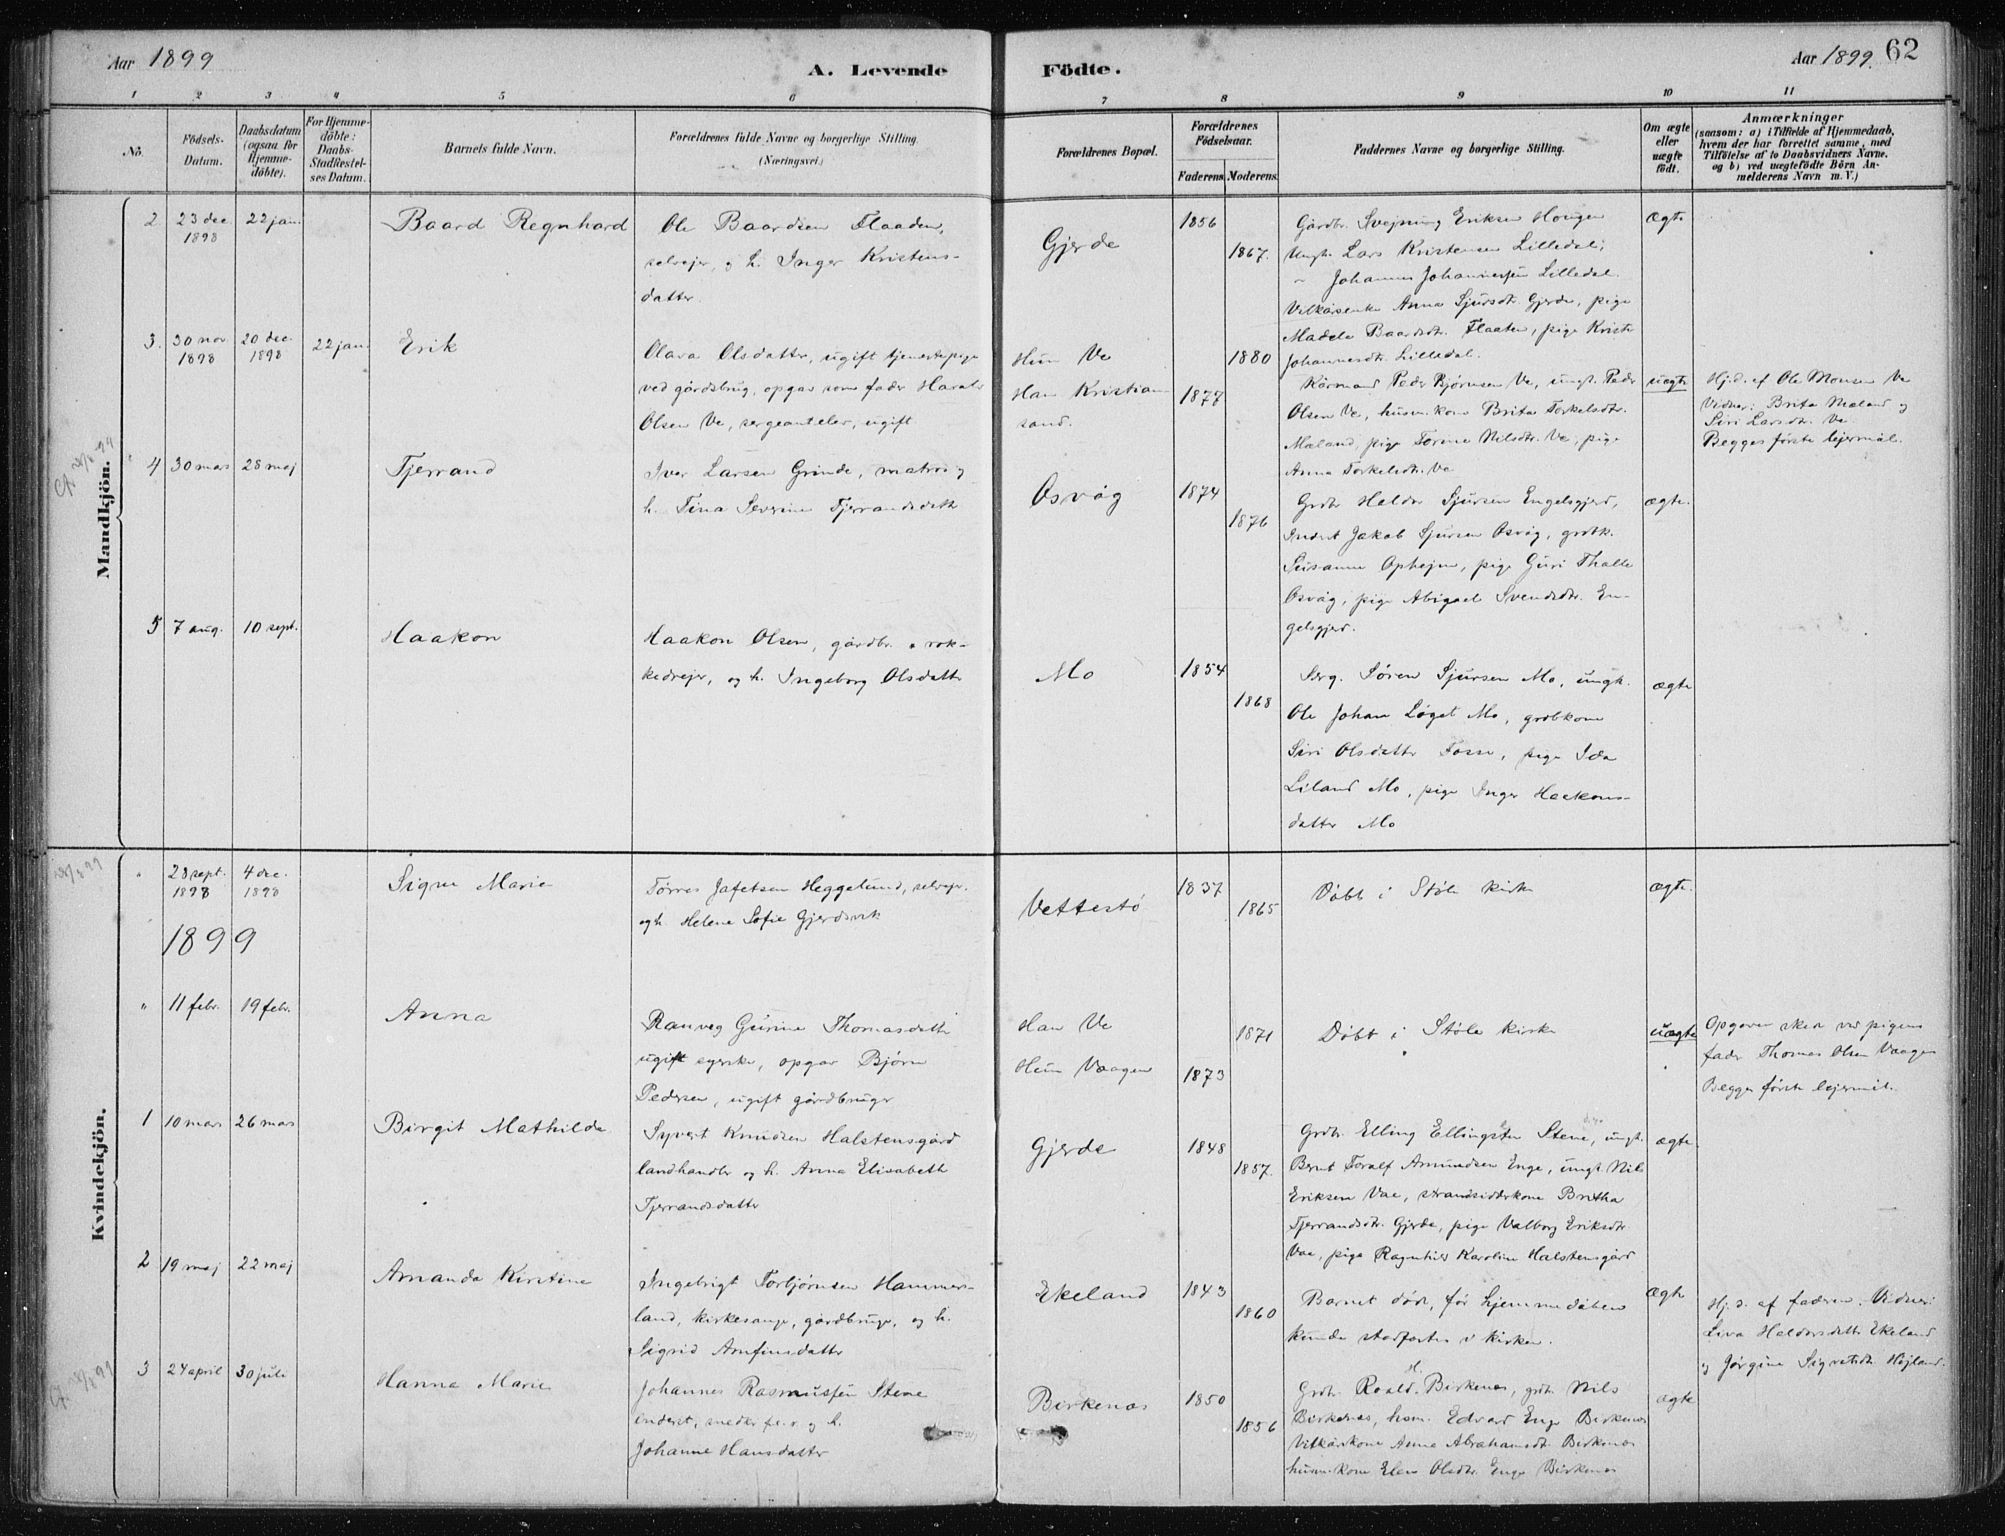 Aar 1899
A. Levende Födte.
Aar 1899. 62
1 2 3 4 5 6 7 8 9 10 11
No.
Födsels-
Datum.
Daabsdatum
(ogsaa for
Hjemme-
döbte).
For Hjemme-
döbte:
Daabs-
Stadfæstel-
ses Datum.
Barnets fulde Navn.
Forældrenes fulde Navne og borgerlige Stilling.
(Næringsvei.)
Forældrenes Bopæl.
Forældrenes
Födselsaar.
Faderens. Moderens.
Faddernes Navne og borgerlige Stilling.
Om ægte
eller
uægte
födt.
Anmærkninger
(saasom: a) i Tilfælde af Hjemmedaab,
hvem der har forrettet samme, med
Tilföielse af to Daabsvidners Navne.
og b) ved uægtefödte Börn An-
melderens Navn m. V.)
Mandkjön.
2 23 dec 1898 22 jan. Baard Regnhard
Ole Baardsen Flaaden,
selvejer, og h. Inger Kristens-
datter.
Gjerde 1856 1867.
Gårdbr. Svejnung Eriksen Hougen
Ungk. Lars Kristensen Lilledal;
~ Johannes Johannessen Lilledal.
Vilkårsenke Anna Sjursdtr. Gjerde, pige
Madele Baardsdtr. Flaaten, pige Kristi
Johannesdtr. Lilledal.
ægte
3. 30 nov 1898 20 dec. 1898 22 jan. Erik
Olava Olsdatter, ugift tjenestepige
ved gårdsbrug, opgav som fader Harald
Olsen Ve, sergeantelev, ugift
Hun Ve
Han Kristian
sand.
1877 1880
Kårmand Peder Bjørnsen Ve, ungk. Peder
Olsen Ve, husm.kone Brita Torkelsdtr.
Mæland, pige Torine Nilsdtr. Ve, pige
Anna Torkelsdtr. Ve
uægte
Hj.d. af Ole Monsen Ve
Vidner: Brita Mæland og
Siri Larsdtr. Ve
Begges første lejermål.
4 30 mars 28 maj Tjerrand
Iver Larsen Grinde, matros og
h. Tina Severine Tjerrandsdatter
Osvåg 1874 1876
Grdbr. Haldor Sjursen Engelsgjerd,
Inderst Jakob Sjursen Osvåg, grdbk.
Susanne Ophejm, pige Guri Thalle
Osvåg, pige Abigael Svendsdtr. En-
gelsgjerd.
ægte.
5 7 aug. 10 sept. Haakon
Haakon Olsen, gårdbr. & rok-
kedrejer, og h. Ingeborg Olsdatter
Mo 1854 1868
Serg. Søren Sjursen Mo, ungk.
Ole Johan Løget Mo, grdbkone
Siri Olsdatter Fosse, pige Ida
Liland Mo, pige Inger Haakons-
datter Mo
ægte
Kvindekjön.
" 28 sept. 1898 4 dec. 1898 Signe Marie
Tørres Jafetsen Heggelund, selvejer
og h. Helene Sofie Gjerdsvik
Vettestø 1837 1865
Døbt i Støle kirke
ægte.
1899
" 11 febr. 19 febr. Anna
Ranveg Gurine Thomasdatter
ugift egerske, opgav Bjørn
Pedersen, ugift gårdbruger
Han Ve
Hun Vaagen
1871 1873
Døbt i Støle kirke
uægte
Opgaven skea ved pigens
fader Thomas Olsen Vaagen
Begges første lejermål.
1 10 mars 26 mars Birgit Mathilde
Syvert Knudsen Halstensgård
landhandler og h. Anna Elisabeth
Tjerrandsdatter
Gjerde 1848 1857.
Grdbr. Elling Ellingsen Stene, ungk.
Bernt Toralf Amundsen Enge, ungk. Nils
Eriksen Vae, strandsidderkone Britha
Tjerrandsdtr. Gjerde, pige Valborg Eriksdtr.
Vae, pige Ragnhild Karoline Halstensgård
ægte
2 19 maj 22 maj Amanda Kirstine
Ingebrigt Torbjørnsen Hammers-
land, kirkesanger, gårdbruger, og h.
Sigrid Arnfinsdatter
Ekeland 1843 1860
Barnet døde, før hjemmedåben
kunde stadfæstes i kirken.
ægte
Hj.d. af faderen. Vidner:
Liva Haldorsdatter Ekeland
og Jørgine Sigvatsdtr. Højland.
3 24 april 30 juli Hanna Marie
Johannes Rasmussen Stene
inderst, snedker og h.
Johanne Hansdatter
Birkenæs 1850 1856
Grdbr. Roald H. Birkenæs, grdbr. Nils
Birkenæs, hsm. Edvard Enge Birkenæs
Vilkårskone Anne Abrahamsdtr. Birkenæs
husm.kone Elen Olsdtr. Enge Birkenæs
ægte